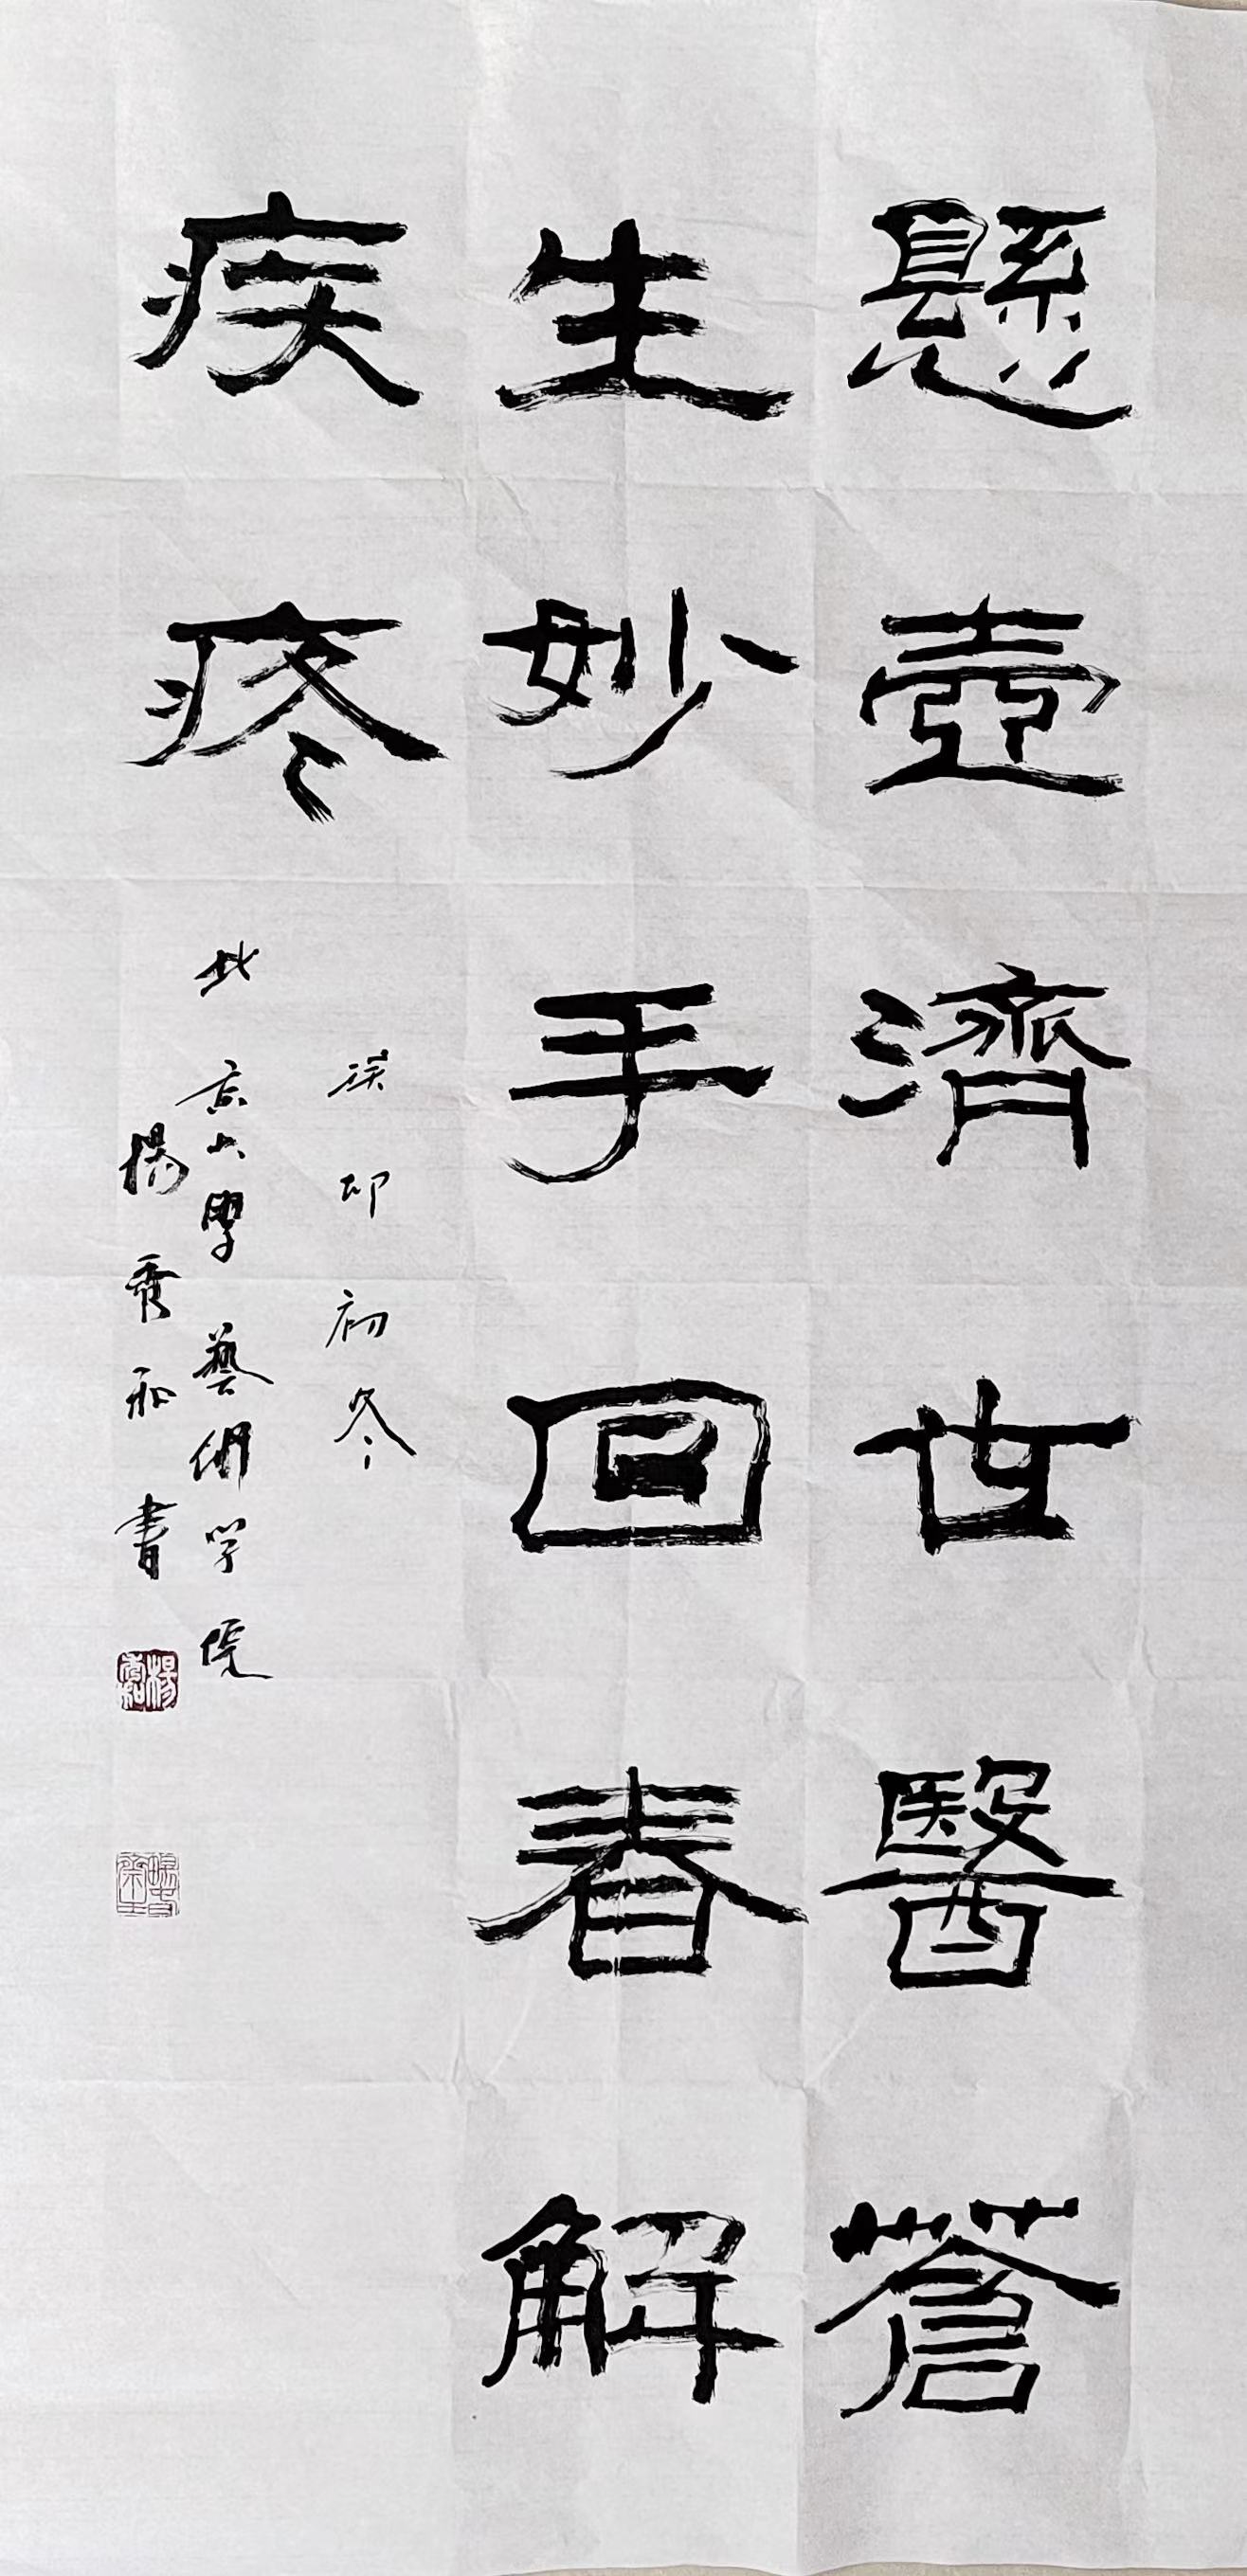 懸壺濟世醫蒼
生妙手回春解
疾疼
癸卯初冬
北京大學藝術学院
楊秀和書